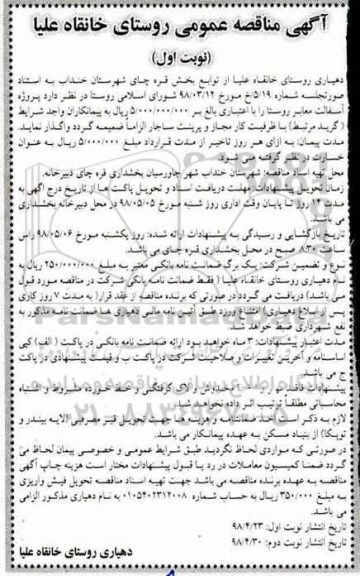 آگهی مناقصه عمومی روستای خانقاه علیا
(نوبت اول)
دهیاری روستای خانقاه علیا از توابع بخش قره چای شهرستان خنداب به استناد
صورتجلسه شماره ۵/۱۹/خ مورخ ۹۸/۰۳/۱۲ شورای اسلامی روستا در نظر دارد پروژه
آسفالت معابر روستا را با اعتباری بالغ بر ۵/۰۰۰/۰۰۰/۰۰۰ ریال به پیمانکاران واجد شرایط
(گرید مرتبط) با ظرفیت کار مجاز و پرینت ساجار الزاماً ضمیمه گردد واگذار نماید.
مدت پیمان: به ازای هر روز تاخیر از مدت قرارداد مبلغ ۵/۰۰۰/۰۰۰ ریال به عنوان
خسارت در نظر گرفته می شود.
محل تهیه اسناد مناقصه: شهرستان خنداب شهر جاورسیان بخشداری قره چای دبیرخانه.
زمان تحویل پیشنهادات: مهلت دریافت اسناد و تحویل پاکت ها از تاریخ درج آگهی به
مدت ۱۲ روز تا پایان وقت اداری روز شنبه مورخ ۹۸/۰۵/۰۵ در محل دبیرخانه بخشداری
می باشد.
تاریخ بازگشایی و رسیدگی به پیشنهادات ارائه شده: روز یکشنبه مورخ ۹۸/۰۵/۰۶ راس
ساعت ۸:۳۰ صبح در محل بخشداری قره چای می باشد.
نوع و تضمین شرکت: یک برگ ضمانت نامه بانکی معتبر به مبلغ ۲۵۰/۰۰۰/۰۰۰ ریال به
نام دهیاری روستای خانقاه علیا (فقط ضمانت نامه بانکی شرکت در مناقصه مورد قبول
می باشد) دریافت می گردد در صورتی که برنده مناقصه از عقد قرارداد به مدت ۷ روز کاری
پس از ابلاغ دهیاری امتناع ورزد طبق آئین نامه مالی دهیاری ها ضمانت نامه مذکور به
نفع شهرداری ضبط خواهد شد.
مدت اعتبار پیشنهادات: ۳ ماه خواهد بود ارائه ضمانت نامه بانکی در پاکت (الف) کپی
اساسنامه و آخرین تغییرات و صلاحیت شرکت در پاکت ب و قیمت پیشنهادی در پاکت
ج می باشد.
محاسباتی مطلقاً ترتیب اثر داده نخواهد شد.
لازم به ذکر است اخذ ضمانتنامه و هزینه ها جهت تحویل قیر مصرفی (لایه بیندر و
توپکا) از بنیاد مسکن به عهده پیمانکار می باشد.
در صورتی که مواردی لحاظ نگردید طبق شرایط عمومی و خصوصی پیمان لحاظ می
گردد ضمنا کمیسیون معاملات در رد یا قبول پیشنهادات مختار است هزینه چاپ آگهی
مناقصه به عهده برنده مناقصه می باشد جهت تهیه اسناد مناقصه تحویل فیش واریزی
به مبلغ ۳۵۰/۰۰۰ ریال به حساب شماره ۰۱۰۵۴۰۲۳۱۲۰۰۸ به نام دهیاری مذکور الزامی
می باشد.
تاریخ انتشار نوبت اول: ۹۸/۴/۲۳
تاریخ انتشار نوبت دوم: ۹۸/۴/۳۰
دهیاری روستای خانقاه علیا